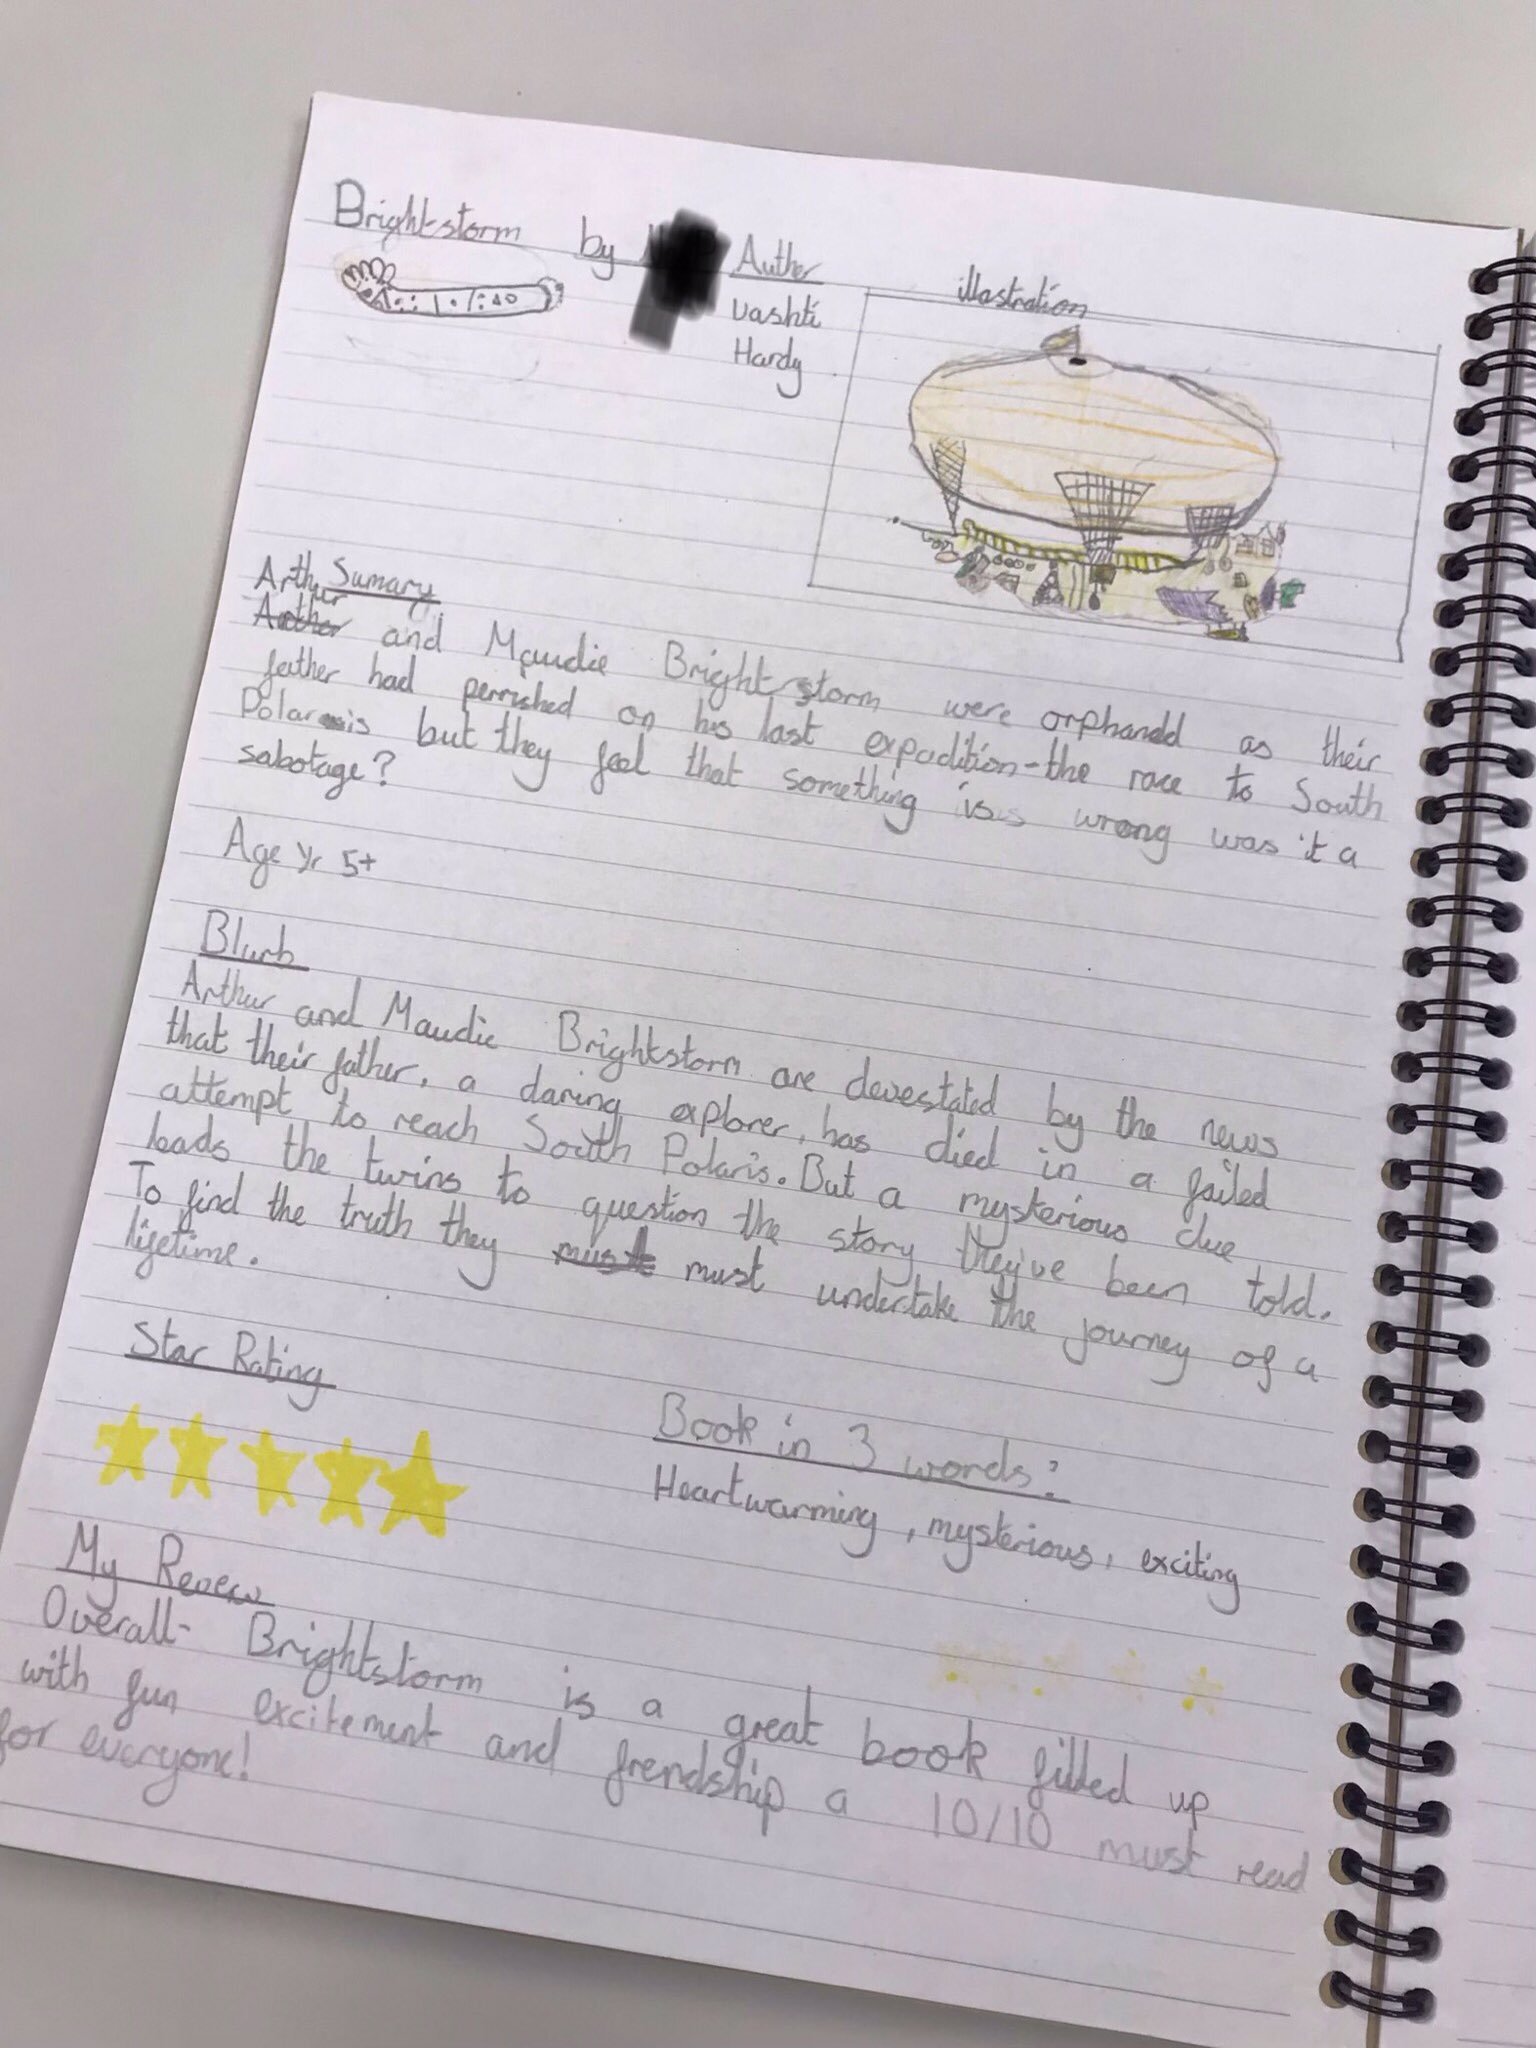 Brightstorm by
Auther
Vashti
Hardy
illastration
Sumary
Arthur
Auther and Maudie Brightstorm were orphandd as their
father had perrished on his last expadition-the race to South
Polaris but they feel that something is wrong was it a
sabotage?
Age yr 5+
Blurb
Arthur and Maudie Brightstorm are devestated by the news
that their father, a daring explorer, has died in a failed
attempt to reach South Polaris. But a mysterious clue
leads the twins to question the story they've been told.
To find the truth they must must undertake the journey of a
lifetime.
Star Rating
Book in 3 words:
Heartwarming, mysterious, exciting
My Revew
Overall- Brightstorm is a great book filled up
with fun excitement and frendship a 10/10 must read
for everyone!